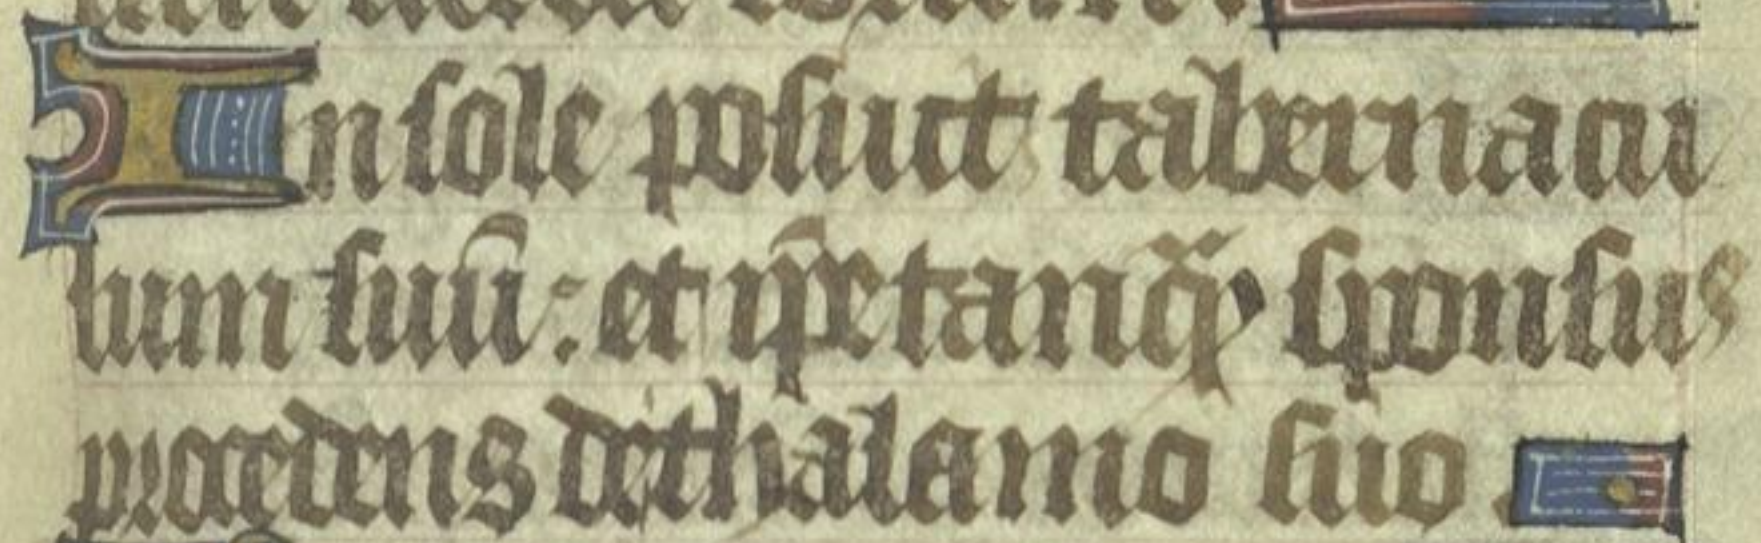 In sole posuit tabernacu
lum suū : et ip̄e tanq̃ sponsus
procedens de thalamo suo .